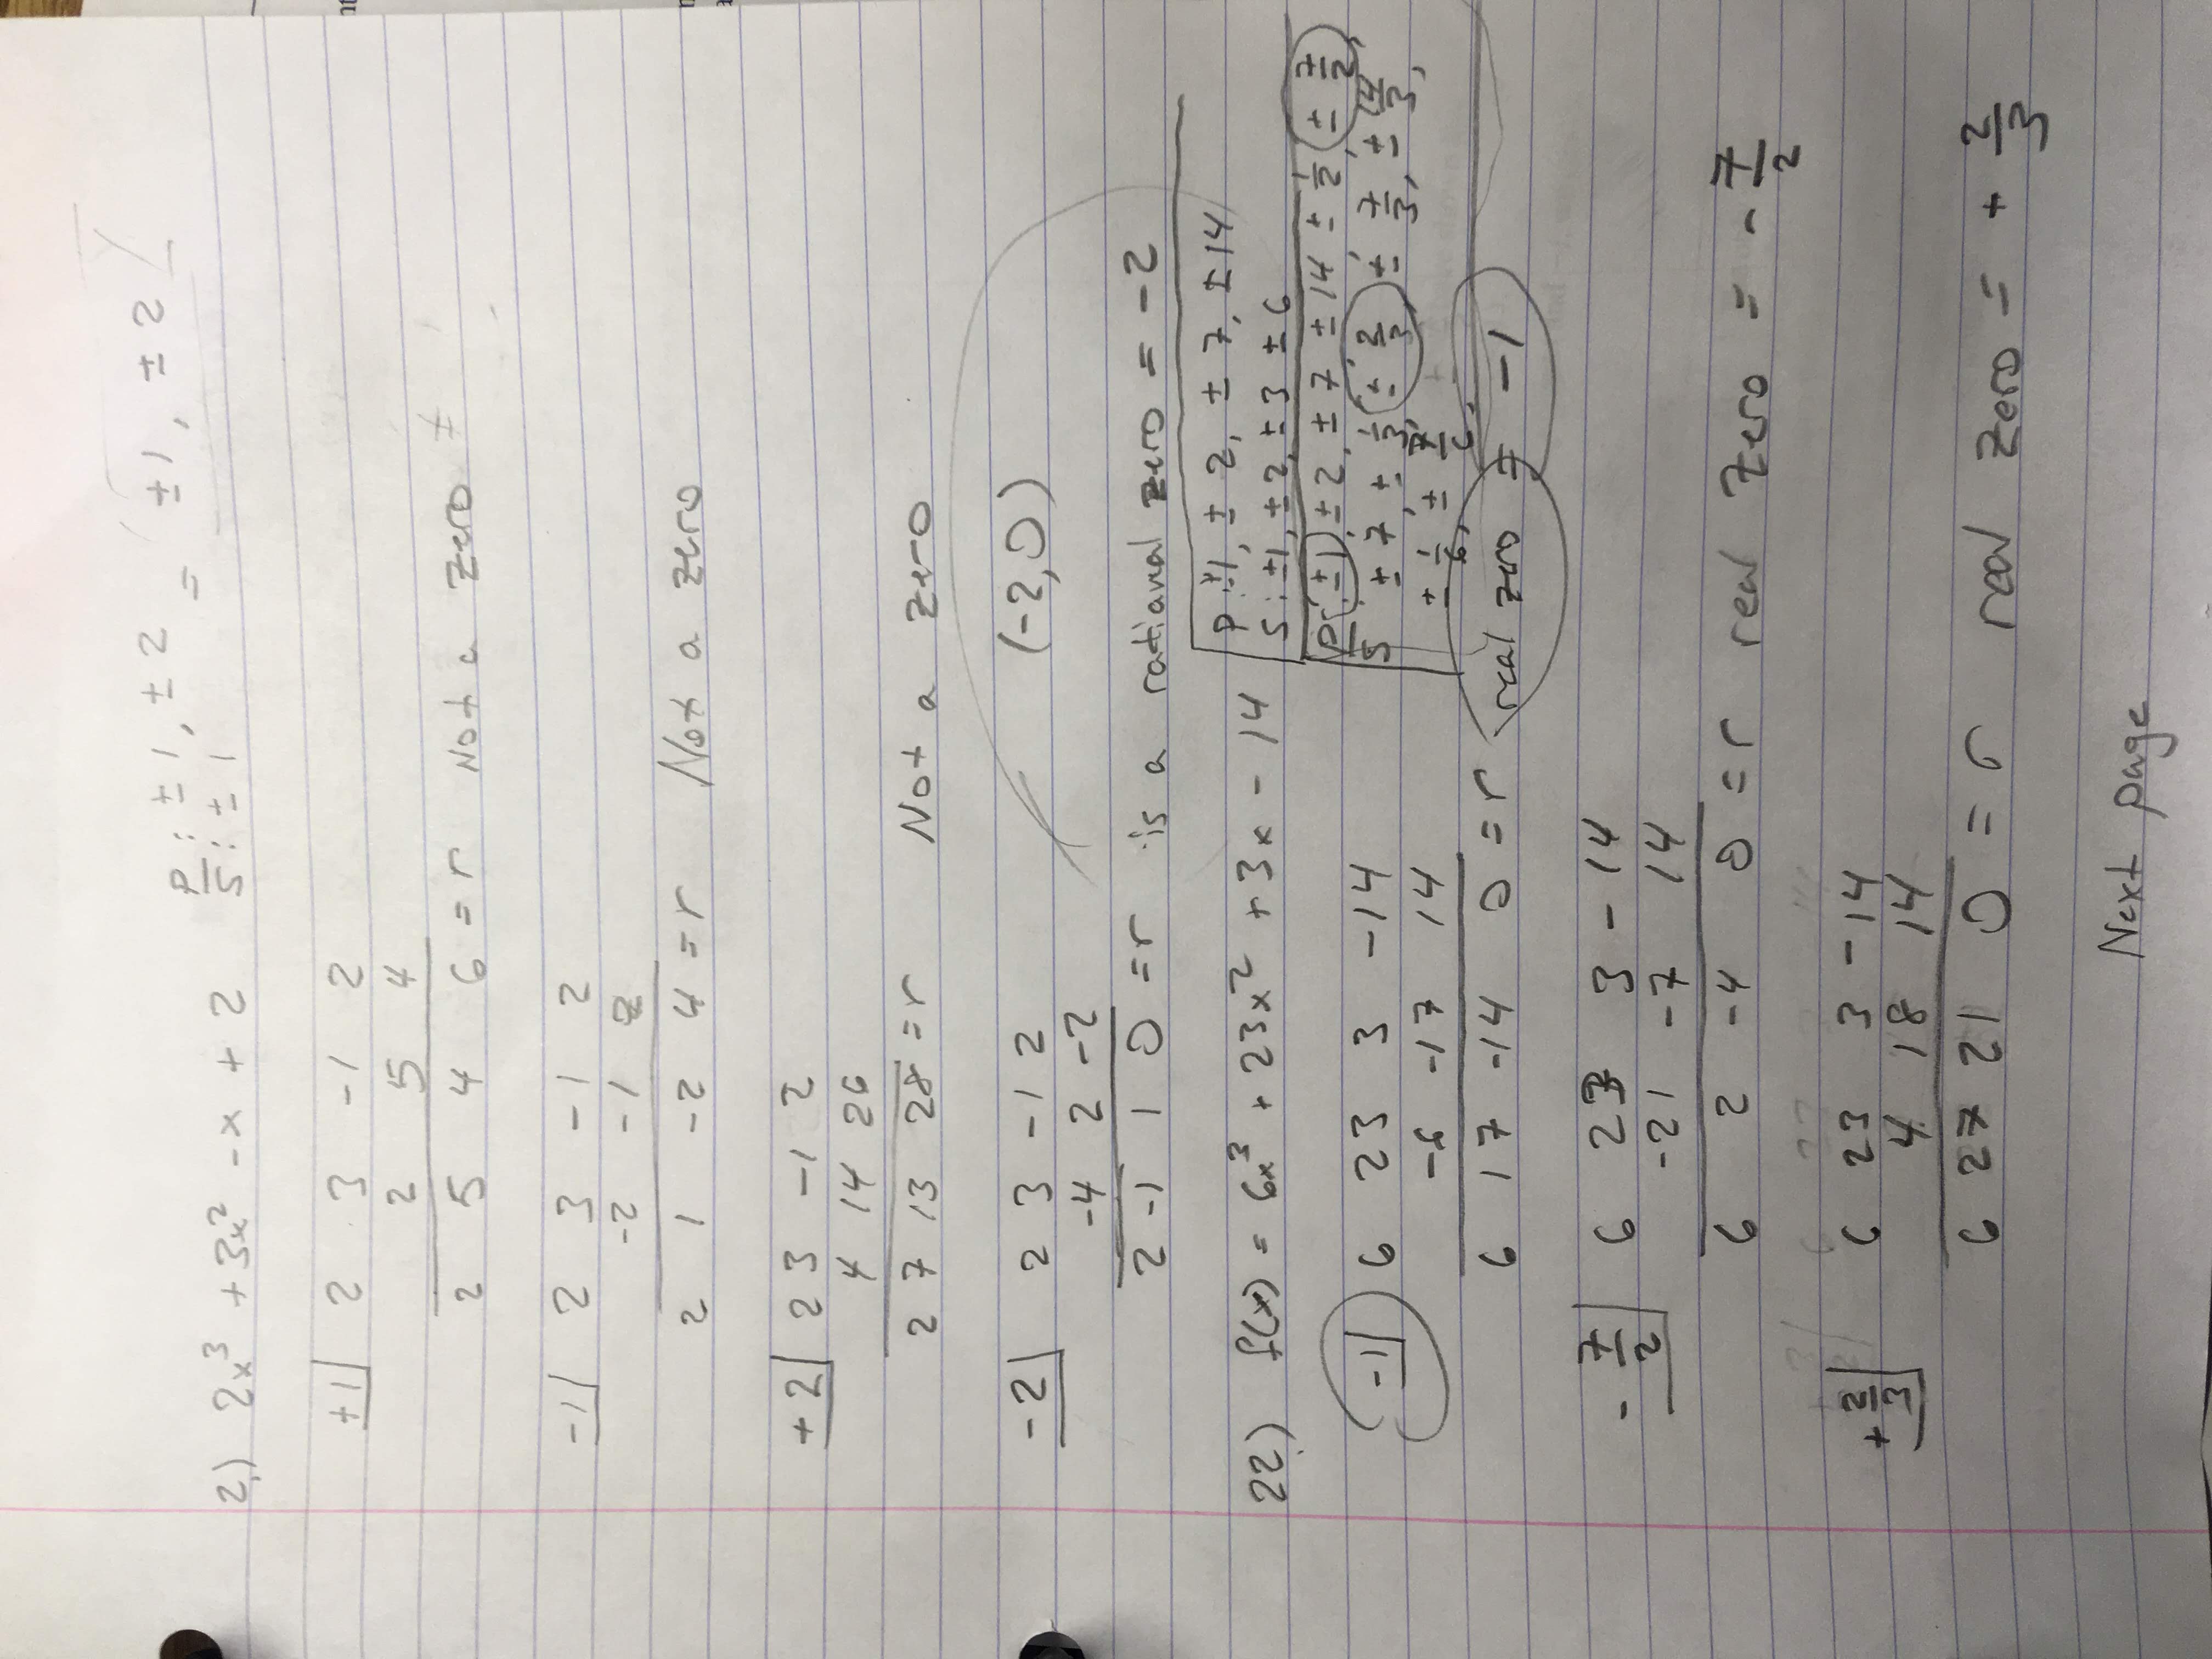 2) 2x³ + 3x² - x + 2   P/S : ±1, ±2 / : ±1 = ±1, ±2
+1| 2 3 -1 2
2 5 4
2 5 4 6 = r Not a zero ≠
-1| 2 3 -1 2
-2 -1 2
2 1 -2 4 = r Not a zero
+2| 2 3 -1 2
4 14 26
2 7 13 28 = r Not a zero
-2| 2 3 -1 2 (-2,0)
-4 2 -2
2 -1 1 0 = r is a rational zero = -2
22) f(x) = 6x³ + 23x² + 3x - 14
P: ±1, ±2, ±7, ±14
S: ±1, ±2, ±3 ±6
P/S: ±1, ±2, ±7 ±14 ±1/2, ±7/2,
±7 ±1/3, ±2/3, ±7/3, ±14/3,
±1/6, ±7/6,
-1| 6 23 3 -14
-6 -17 14
6 17 -14 0 = r real zero = -1
-7/2| 6 23 3 -14
-21 -7 14
6 2 -4 0 = r real zero = -7/2
+2/3| 6 23 3 -14
4 18 14
6 27 21 0 = r real zero = +2/3
Next page